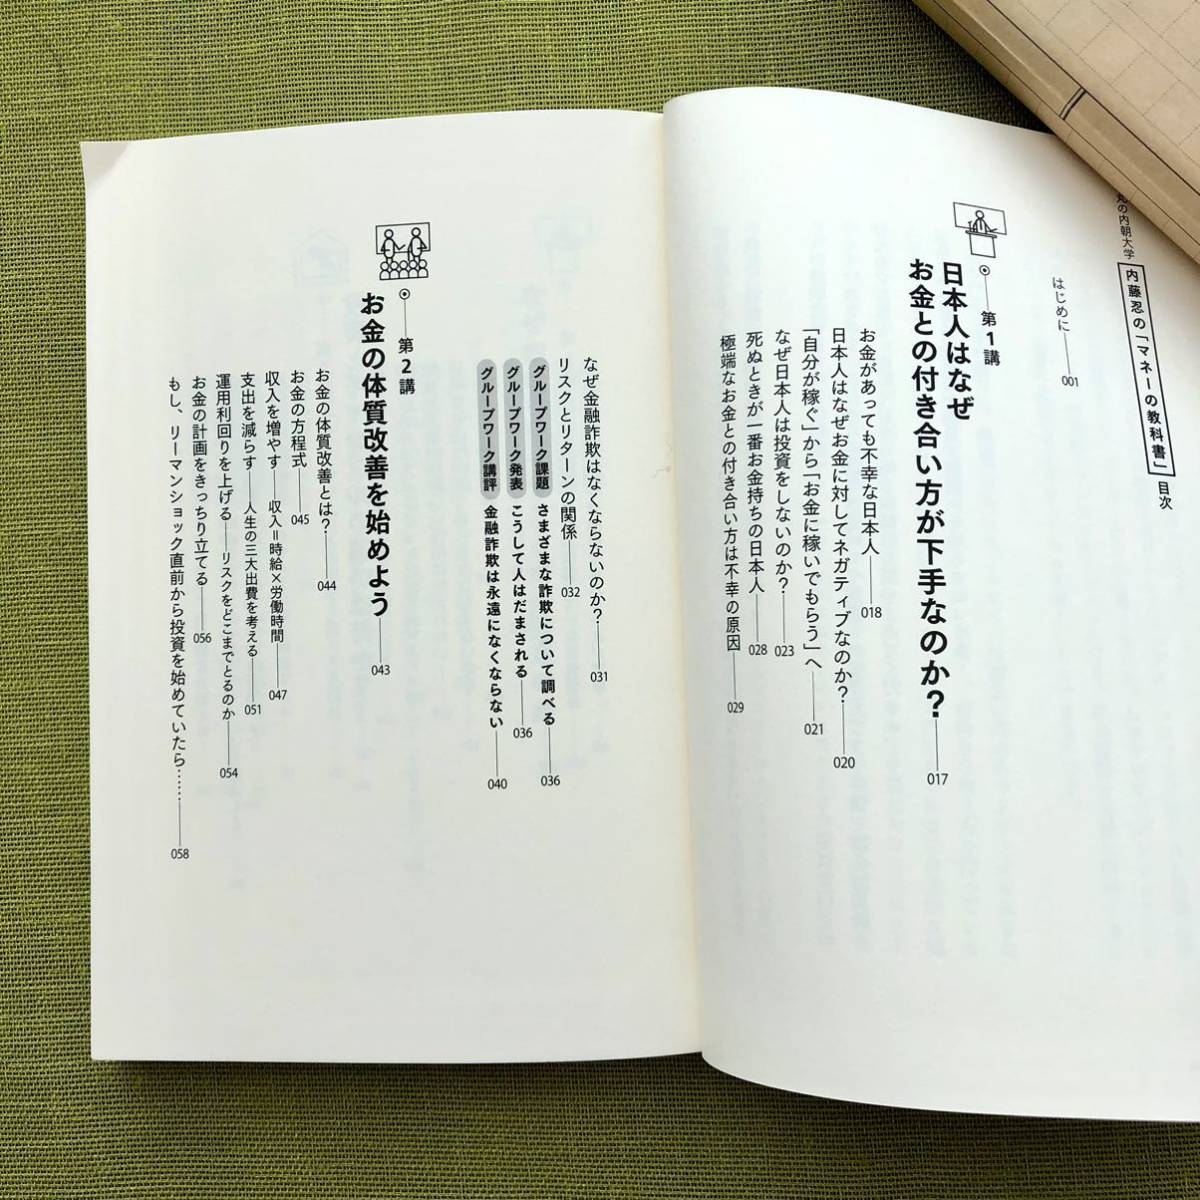 丸の内朝大学 内藤忍の「マネーの教科書」 目次
はじめに 001
第1講
日本人はなぜ
お金との付き合い方が下手なのか? 017
お金があっても不幸な日本人 018
日本人はなぜお金に対してネガティブなのか? 020
「自分が稼ぐ」から「お金に稼いでもらう」へ 021
なぜ日本人は投資をしないのか? 023
死ぬときが一番お金持ちの日本人 028
極端なお金との付き合い方は不幸の原因 029
なぜ金融詐欺はなくならないのか? 031
リスクとリターンの関係 032
グループワーク課題 さまざまな詐欺について調べる 036
グループワーク発表 こうして人はだまされる 036
グループワーク講評 金融詐欺は永遠になくならない 040
第2講
お金の体質改善を始めよう 043
お金の体質改善とは? 044
お金の方程式 045
収入を増やす 収入=時給×労働時間 047
支出を減らす 人生の三大出費を考える 051
運用利回りを上げる リスクをどこまでとるのか 054
お金の計画をきっちり立てる 056
もし、リーマンショック直前から投資を始めていたら…… 058